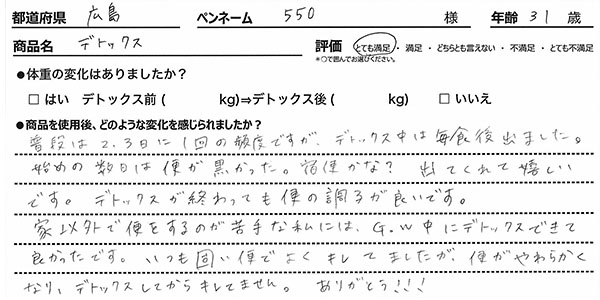 都道府県 広島 ペンネーム 550 様 年齢 31 歳
商品名 デトックス 評価 とても満足・満足・どちらとも言えない・不満足・とても不満足
*○で囲んでお選びください。
●体重の変化はありましたか?
□ はい デトックス前 ( kg)⇒デトックス後 ( kg) □ いいえ
●商品を使用後、どのような変化を感じられましたか?
普段は2.3日に1回の頻度ですが、デトックス中は毎食後出ました。
始めの数日は便が黒かった。宿便かな? 出てくれて嬉しい
です。デトックスが終わっても便の調子が良いです。
家以外で便をするのが苦手な私には、G.W中にデトックスできて
良かったです。いつも固い便でよくキレてましたが、便がやわらかく
なり、デトックスしてからキレてません。ありがとう!!!